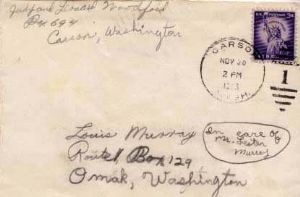 Woodford
Carson, Washington
CARSO
NOV 20
2 PM
WASH.
1
Louis Murray
Route 1 Box 129
Omak, Washington
In care of
Mr. Lester
Murray